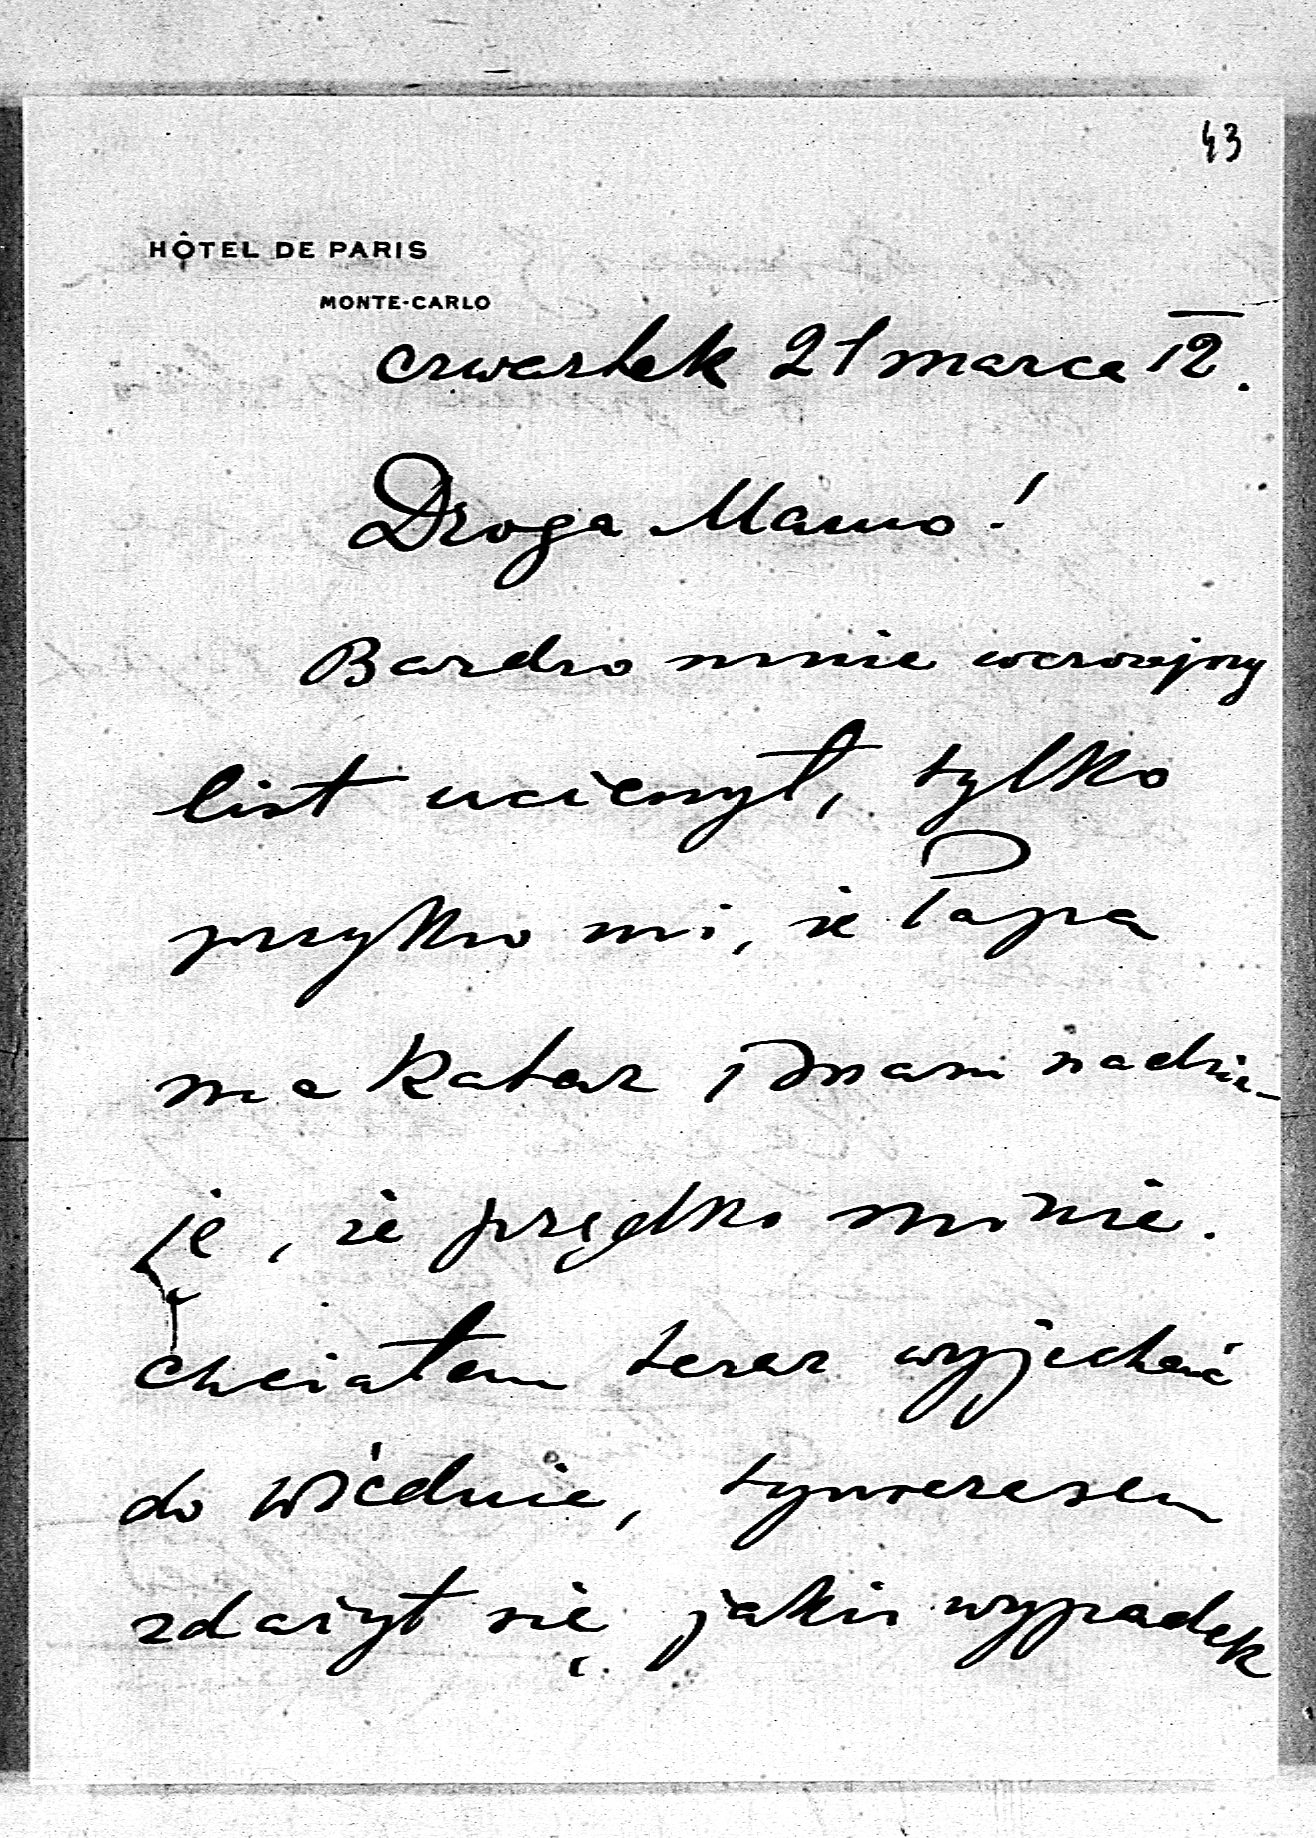 43
HÔTEL DE PARIS
MONTE-CARLO
czwartek 21 marca 12.
Droga Mamo!
Bardzo mnie wczorajszy
list ucieszył, tylko
przykro mi, że Papa
ma katar i mam nadzie-
ję, że prędko minie.
Chciałem teraz wyjechać
do Wiednia, tymczasem
zdarzył się jakiś wypadek